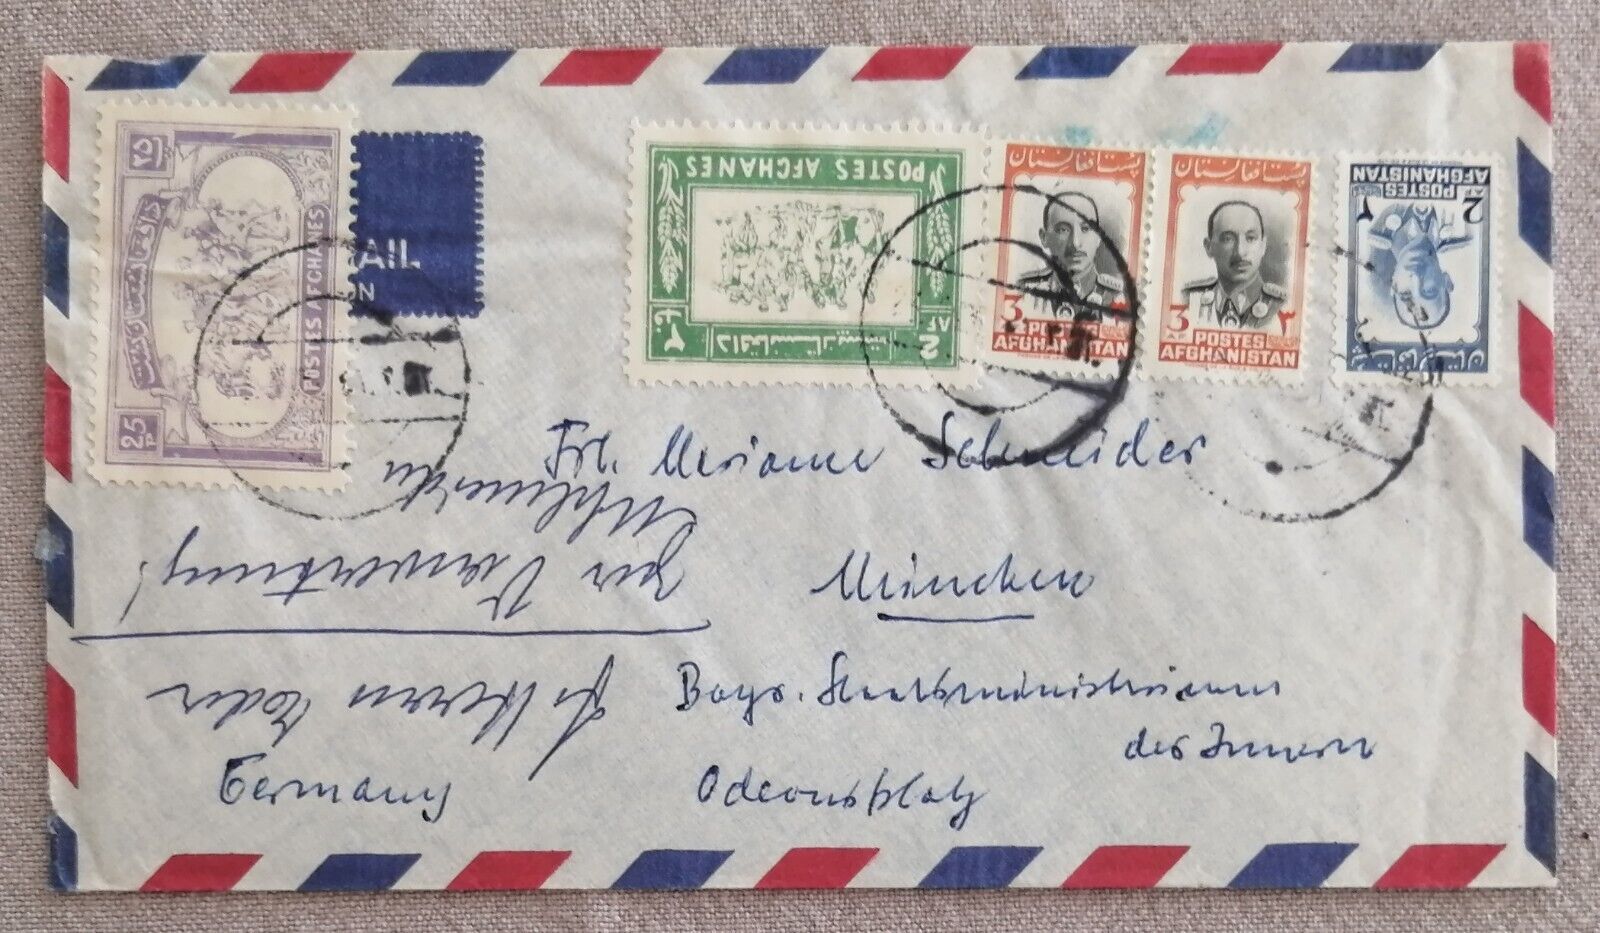 ۲۵
25 P
POSTES AFGHANES
AIL
ON
POSTES AFGHANES
2 AF
۲
پست افغانستان
3 AF
۳
POSTES
AFGHANISTAN
پست افغانستان
3 AF
۳
POSTES
AFGHANISTAN
POSTES
AFGHANISTAN
2
۲
Frl. Marianne Schneider
München
Bayr. Staatsministerium
des Innern
Odeonsplatz
Germany
Herrn
zur Verwertung!